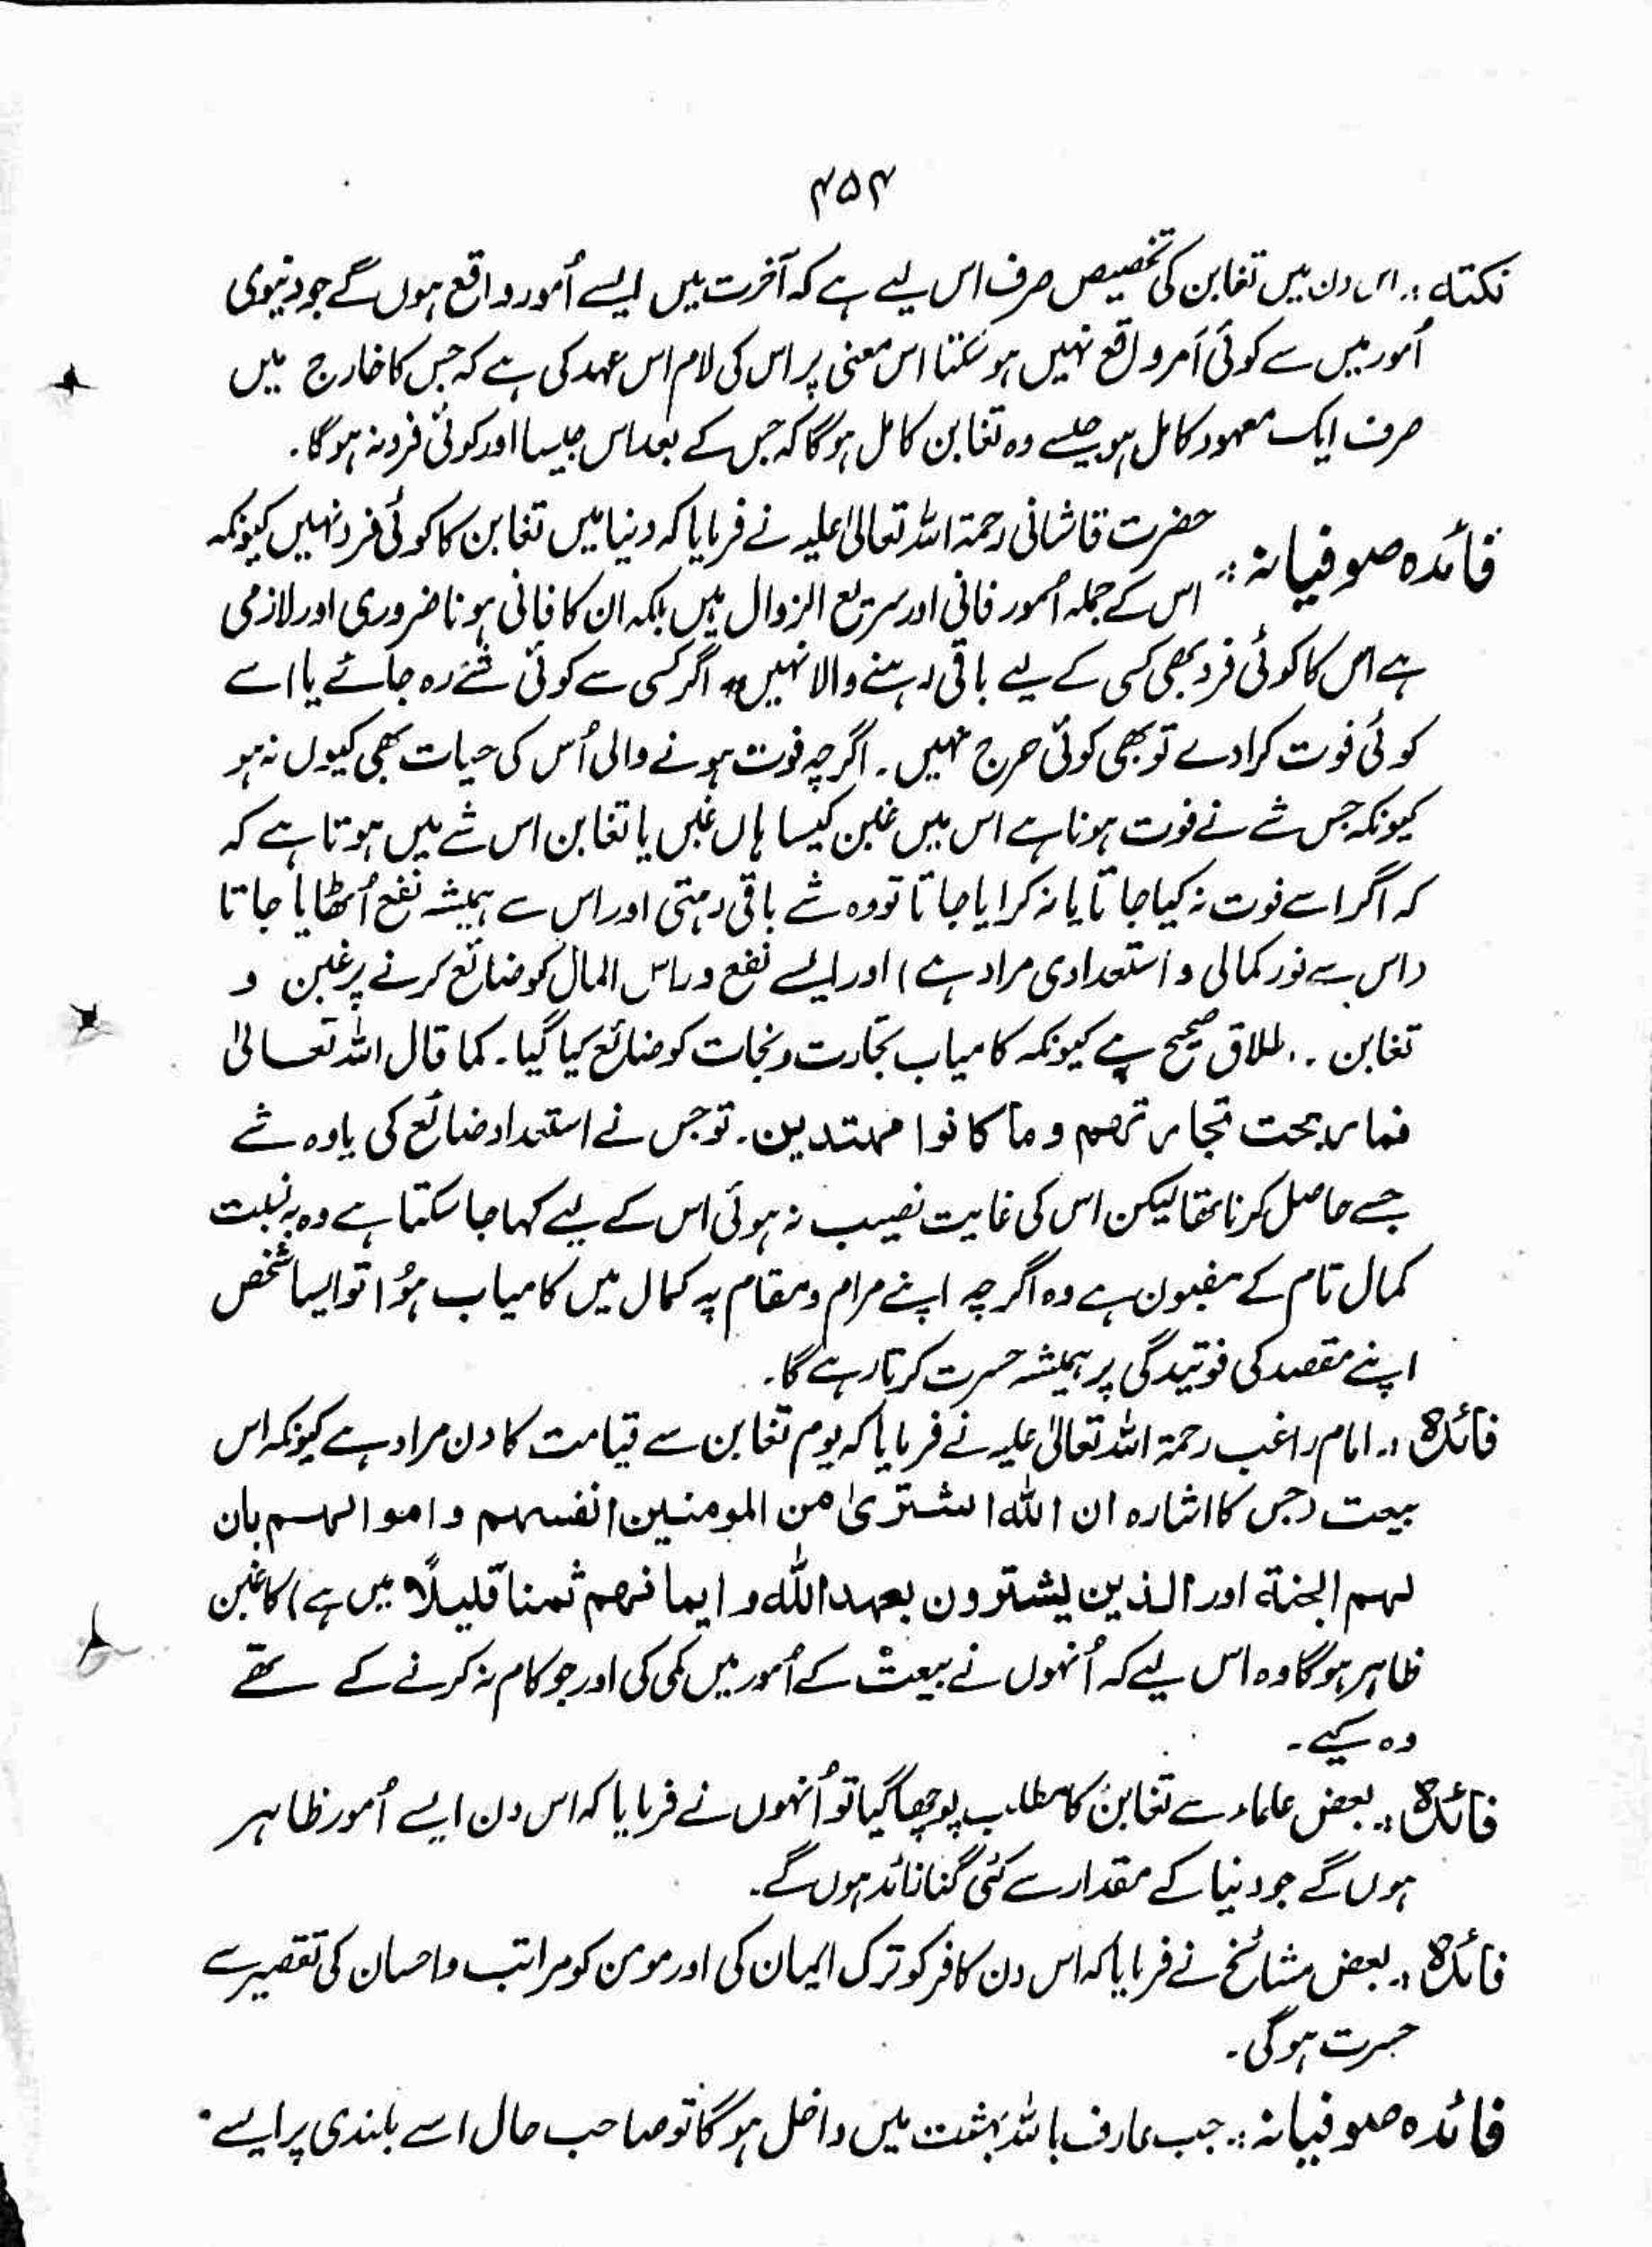 ۴۵۴
نکتہ :۔ اس دن میں تغابن کی تخصیص صرف اس لیے ہے کہ آخرت میں ایسے اُمور واقع ہوں گے جو دنیوی
اُمور میں سے کوئی اَمر واقع نہیں ہو سکتا اس معنی پر اس کی لام اس عہد کی ہے کہ جس کا خارج میں
صرف ایک معہود کامل ہو جیسے وہ تغابن کامل ہوگا کہ جس کے بعد اس جیسا اور کوئی فرد نہ ہوگا۔
فائدہ صوفیانہ :۔ حضرت قاشانی رحمۃ اللہ تعالیٰ علیہ نے فرمایا کہ دنیا میں تغابن کا کوئی فرد نہیں کیونکہ
اس کے جملہ اُمور فانی اور سریع الزوال ہیں بلکہ ان کا فانی ہونا ضروری اور لازمی
ہے اس کا کوئی فرد بھی کسی کے لیے باقی رہنے والا نہیں۔ اگر کسی سے کوئی شے رہ جائے یا اسے
کوئی فوت کرا دے تو بھی کوئی حرج نہیں۔ اگرچہ فوت ہونے والی اُس کی حیات بھی کیوں نہ ہو
کیونکہ جس شے نے فوت ہونا ہے اس میں غبن کیسا ہاں غبن یا تغابن اس شے میں ہوتا ہے کہ
کہ اگر اسے فوت نہ کیا جاتا یا نہ کرایا جاتا تو وہ شے باقی رہتی اور اس سے ہمیشہ نفع اُٹھایا جاتا
(اس سے نور کمالی و استعدادی مراد ہے) اور ایسے نفع و راس المال کو ضائع کرنے پر غبن و
تغابن .. طلاق صحیح ہے کیونکہ کامیاب تجارت و نجات کو ضائع کیا گیا۔ کما قال اللہ تعالیٰ
فما ربحت تجارتھم وما کانوا مھتدین۔ تو جس نے استعداد ضائع کی یا وہ شے
جسے حاصل کرنا تھا لیکن اس کی غایت نصیب نہ ہوئی اس کے لیے کہا جا سکتا ہے وہ بہ نسبت
کمال تام کے مغبون ہے وہ اگرچہ اپنے مرام و مقام پہ کمال میں کامیاب ہوُا تو ایسا شخص
اپنے مقصد کی فوتیدگی پر ہمیشہ حسرت کرتا رہے گا۔
فائدہ :۔ امام راغب رحمۃ اللہ تعالیٰ علیہ نے فرمایا کہ یوم تغابن سے قیامت کا دن مراد ہے کیونکہ اس
بیعت (جس کا اشارہ ان اللہ اشتریٰ من المومنین انفسہم و اموالہم بان
لہم الجنۃ اور الذین یشترون بعہد اللہ و ایمانہم ثمنا قلیلًا میں ہے) کا غبن
ظاہر ہوگا وہ اس لیے کہ اُنھوں نے بیعت کے اُمور میں کمی کی اور جو کام نہ کرنے کے تھے
وہ کیے۔
فائدہ :۔ بعض علماء سے تغابن کا مطلب پوچھا گیا تو اُنھوں نے فرمایا کہ اس دن ایسے اُمور ظاہر
ہوں گے جو دنیا کے مقدار سے کئی گنا زائد ہوں گے۔
فائدہ :۔ بعض مشائخ نے فرمایا کہ اس دن کافر کو ترک ایمان کی اور مومن کو مراتب و احسان کی تقصیر سے
حسرت ہوگی۔
فائدہ صوفیانہ :۔ جب عارف باللہ بہشت میں داخل ہوگا تو صاحب حال اسے بلندی پر ایسے